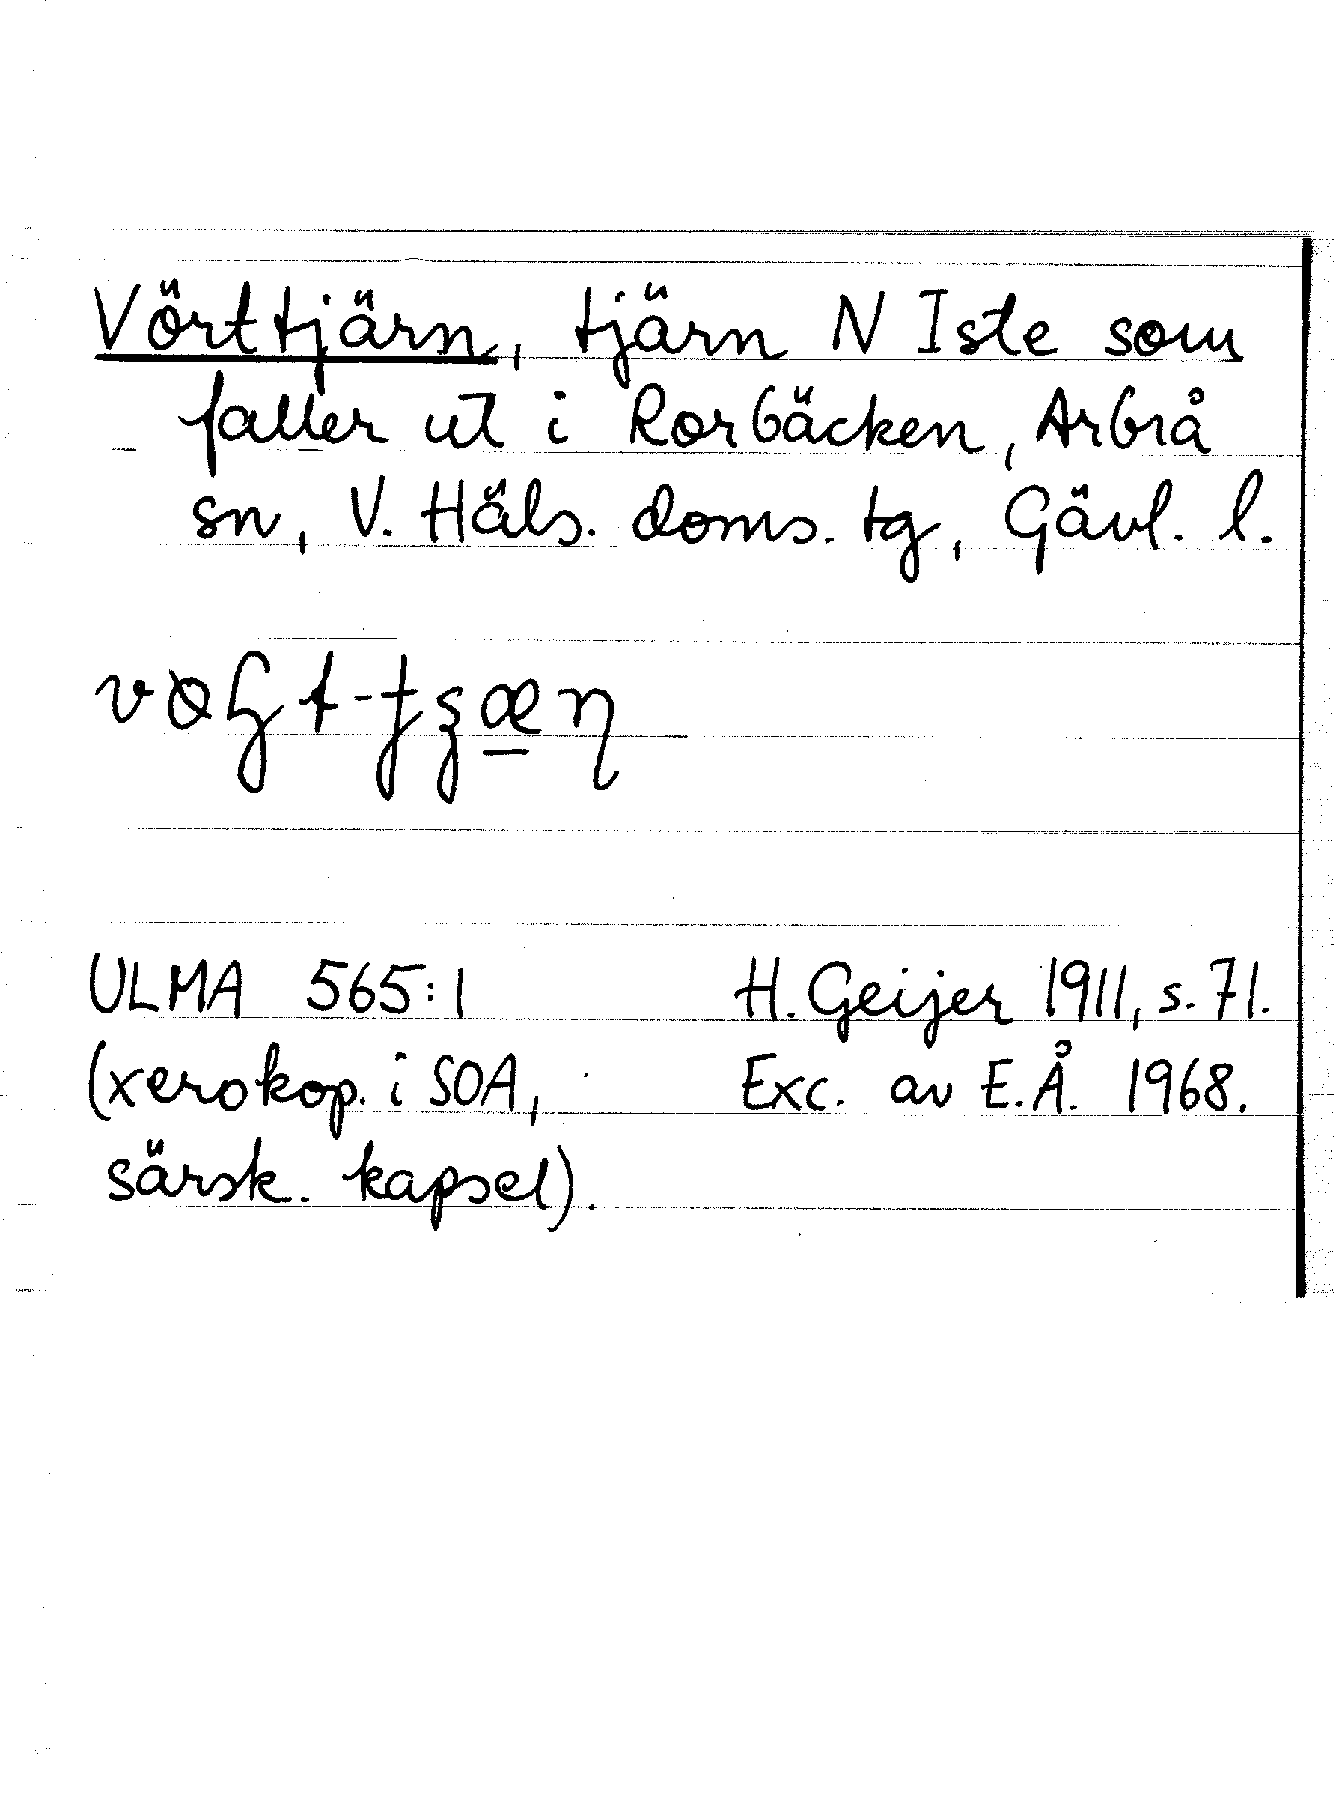 Vörttjärn, tjärn N Iste som
faller ut i Rorbäcken, Arbrå
sn, V. Häls. doms. tg, Gävl. l.
ULMA 565:1 H. Geijer 1911, s. 71.
(xerokop. i SOA, Exc. av E.Å. 1968.
särsk. kapsel).